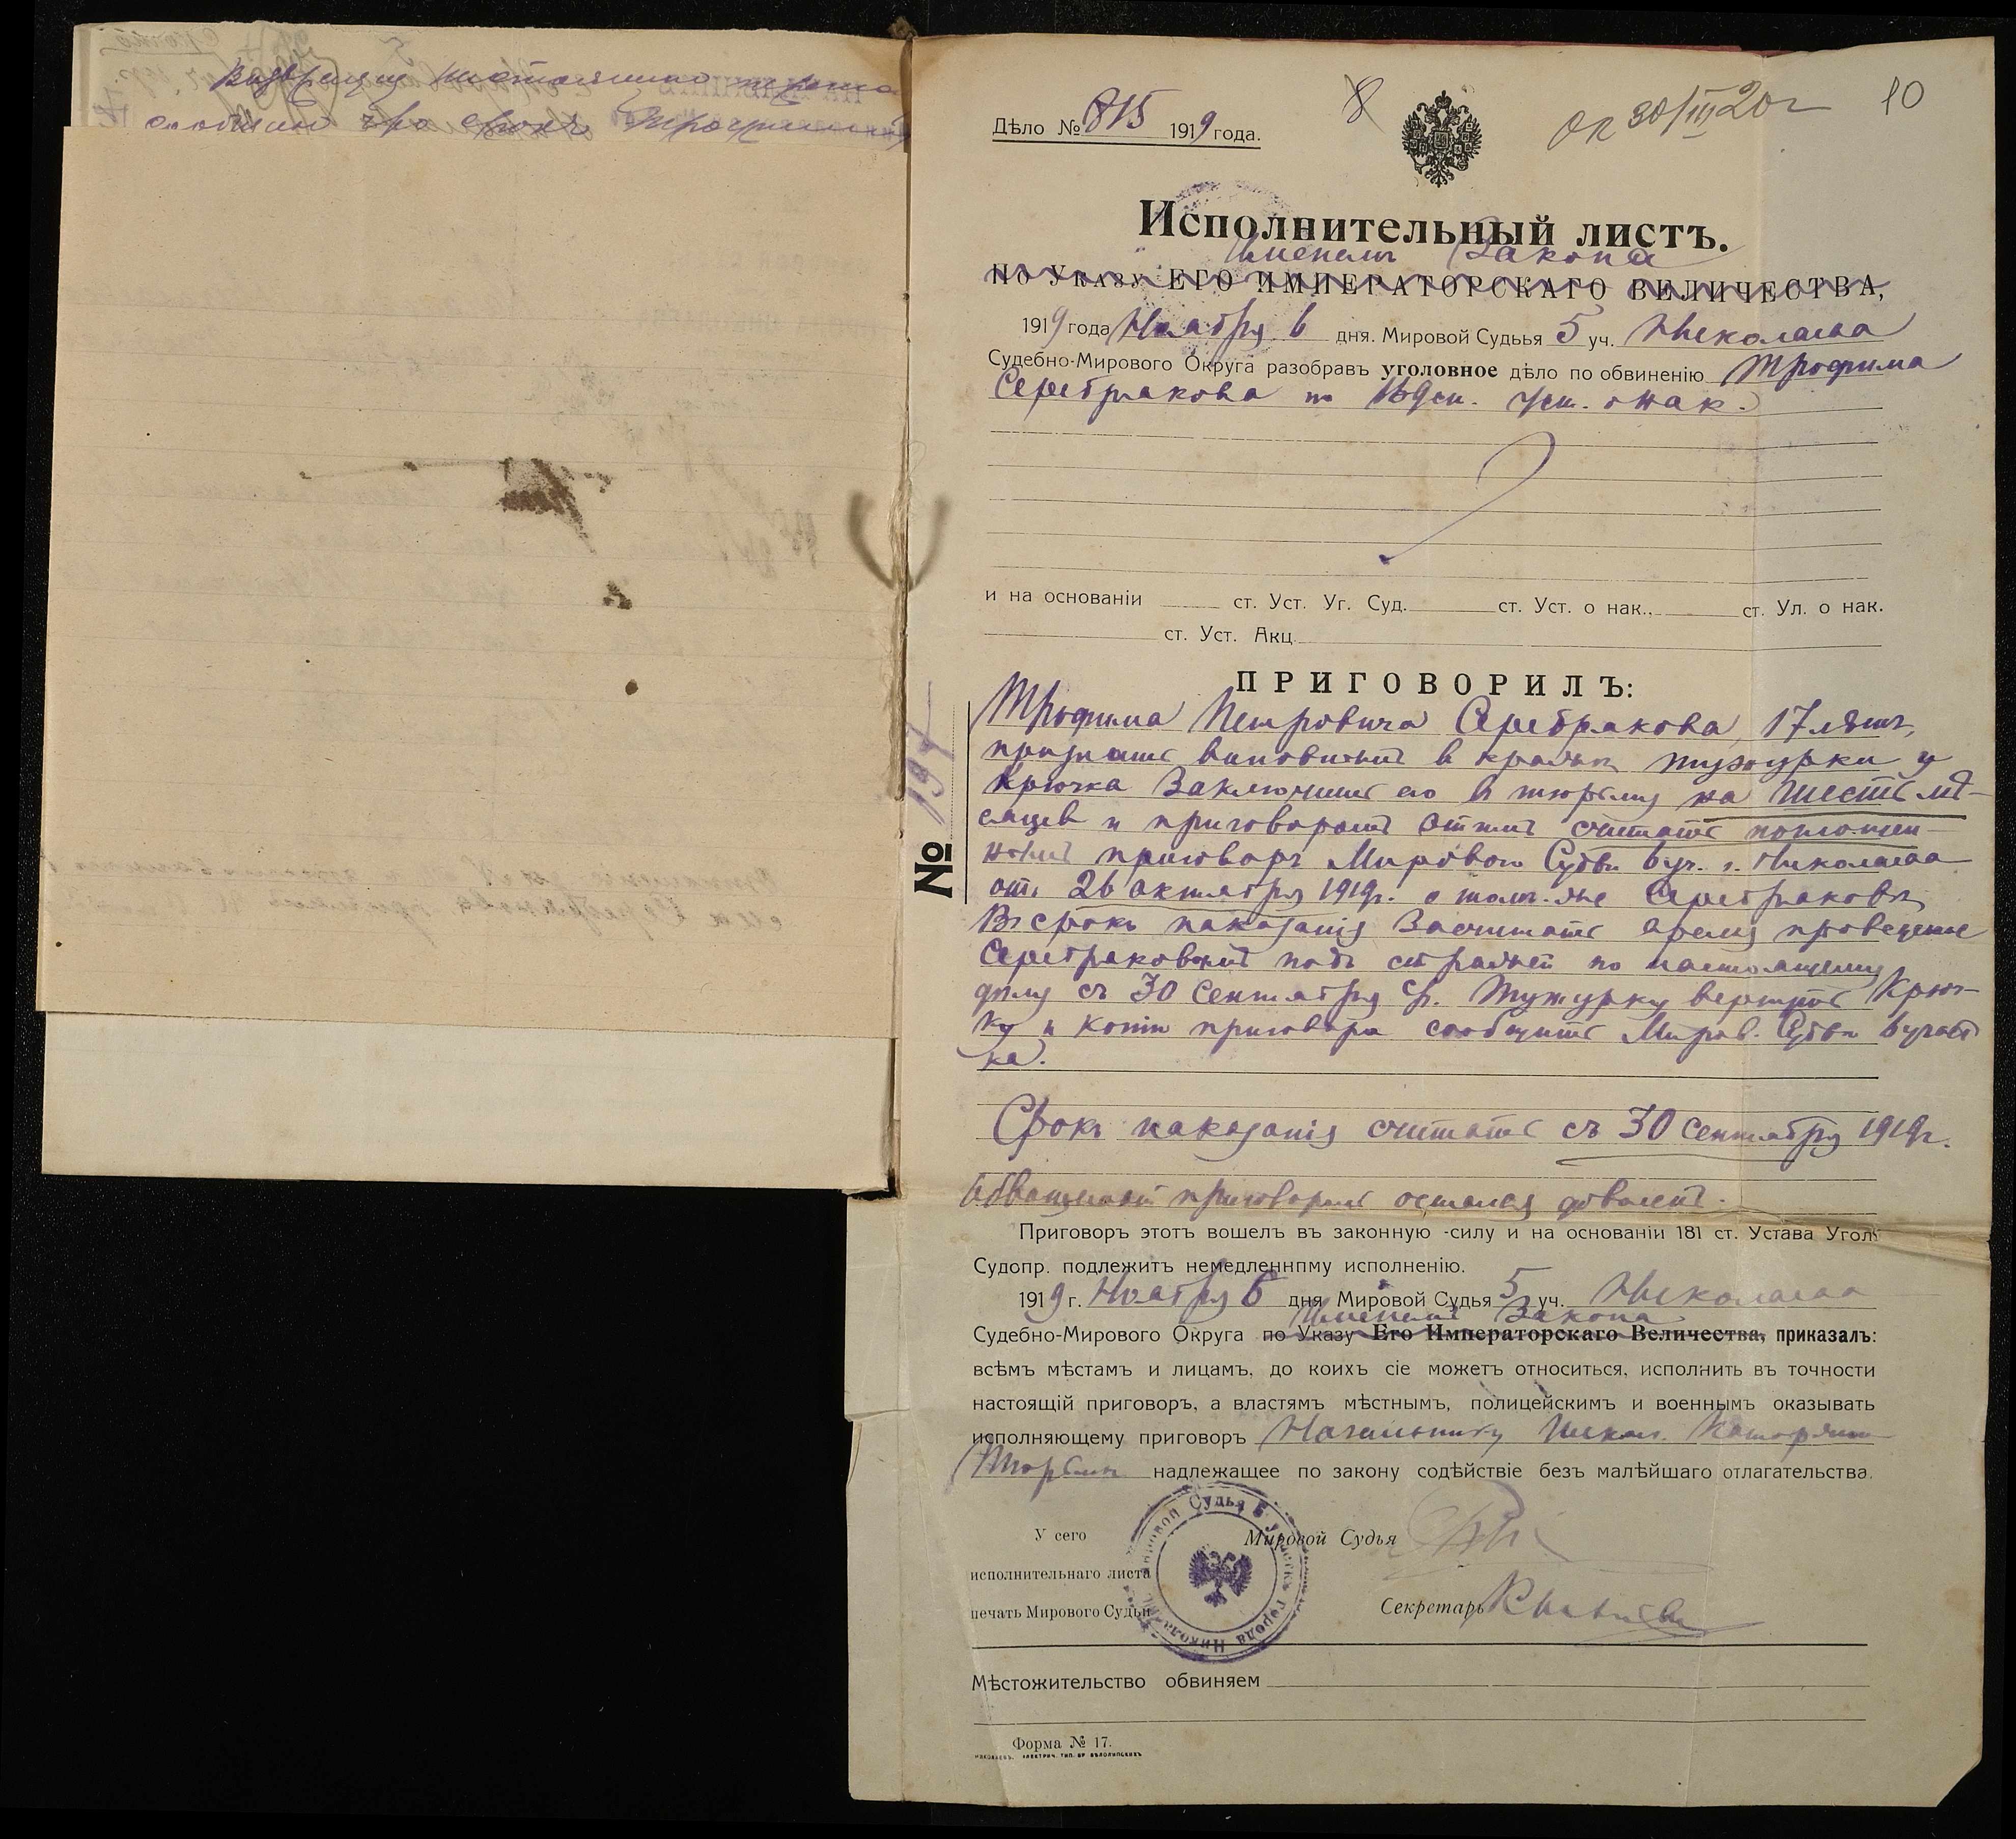 Возвращая настоящую
сообщаю что срокъ
Дѣло № 815 1919 года.
8
ок 30/III 20 г
10
Исполнительный листъ.
Именемъ Закона
ПО УКАЗУ ЕГО ИМПЕРАТОРСКАГО ВЕЛИЧЕСТВА,
1919 года Ноября 6 дня. Мировой Судьья 5 уч. Николаева
Судебно-Мирового Округа разобравъ уголовное дѣло по обвиненію Трофима
Серебрякова по 169 ст. Уст. о нак.
и на основаніи ст. Уст. Уг. Суд. ст. Уст. о нак., ст. Ул. о нак.
ст. Уст. Акц.
ПРИГОВОРИЛЪ:
Трофима Петровича Серебрякова, 17 лѣтъ,
признать виновнымъ в кражѣ тужурки у
Крючка Заключить его в тюрьму на шесть мѣ-
сяцев и приговоромъ этимъ считать поглощен-
нымъ приговоръ Мирового Судьи 6 уч. г. Николаева
отъ 26 октября 1919 г. о томъ-же Серебряковѣ
Въ срокъ наказанія Засчитать время проведенное
Серебряковымъ подъ стражей по настоящему
дѣлу съ 30 Сентября с/г. Тужурку вернуть Крюч-
ку и копію приговора сообщить Миров. Судьѣ 6 участ
ка.
Срокъ наказанія считать съ 30 Сентября 1919 г.
Обвиняемый приговоромъ остался доволенъ.
Приговоръ этотъ вошелъ въ законную -силу и на основаніи 181 ст. Устава Угол.
Судопр. подлежитъ немедленнпму исполненію.
1919 г. Ноября 6 дня Мировой Судья 5 уч. Николаева
Именемъ Закона
Судебно-Мирового Округа по Указу Его Императорскаго Величества, приказалъ:
всѣмъ мѣстамъ и лицамъ, до коихъ сіе можетъ относиться, исполнить въ точности
настоящій приговоръ, а властямъ мѣстнымъ, полицейскимъ и военнымъ оказывать
исполняющему приговоръ Начальнику Никол. Каторжной
Тюрьмы надлежащее по закону содѣйствіе безъ малѣйшаго отлагательства.
У сего
Мировой Судья
исполнительнаго листа
печать Мирового Судьи
Секретарь
Мировой Судья 5 участка города Николаева
Мѣстожительство обвиняем
Форма № 17.
НИКОЛАЕВЪ. ЭЛЕКТРИЧ. ТИП. БР. БѢЛОЛИПСКИХЪ
№ 197